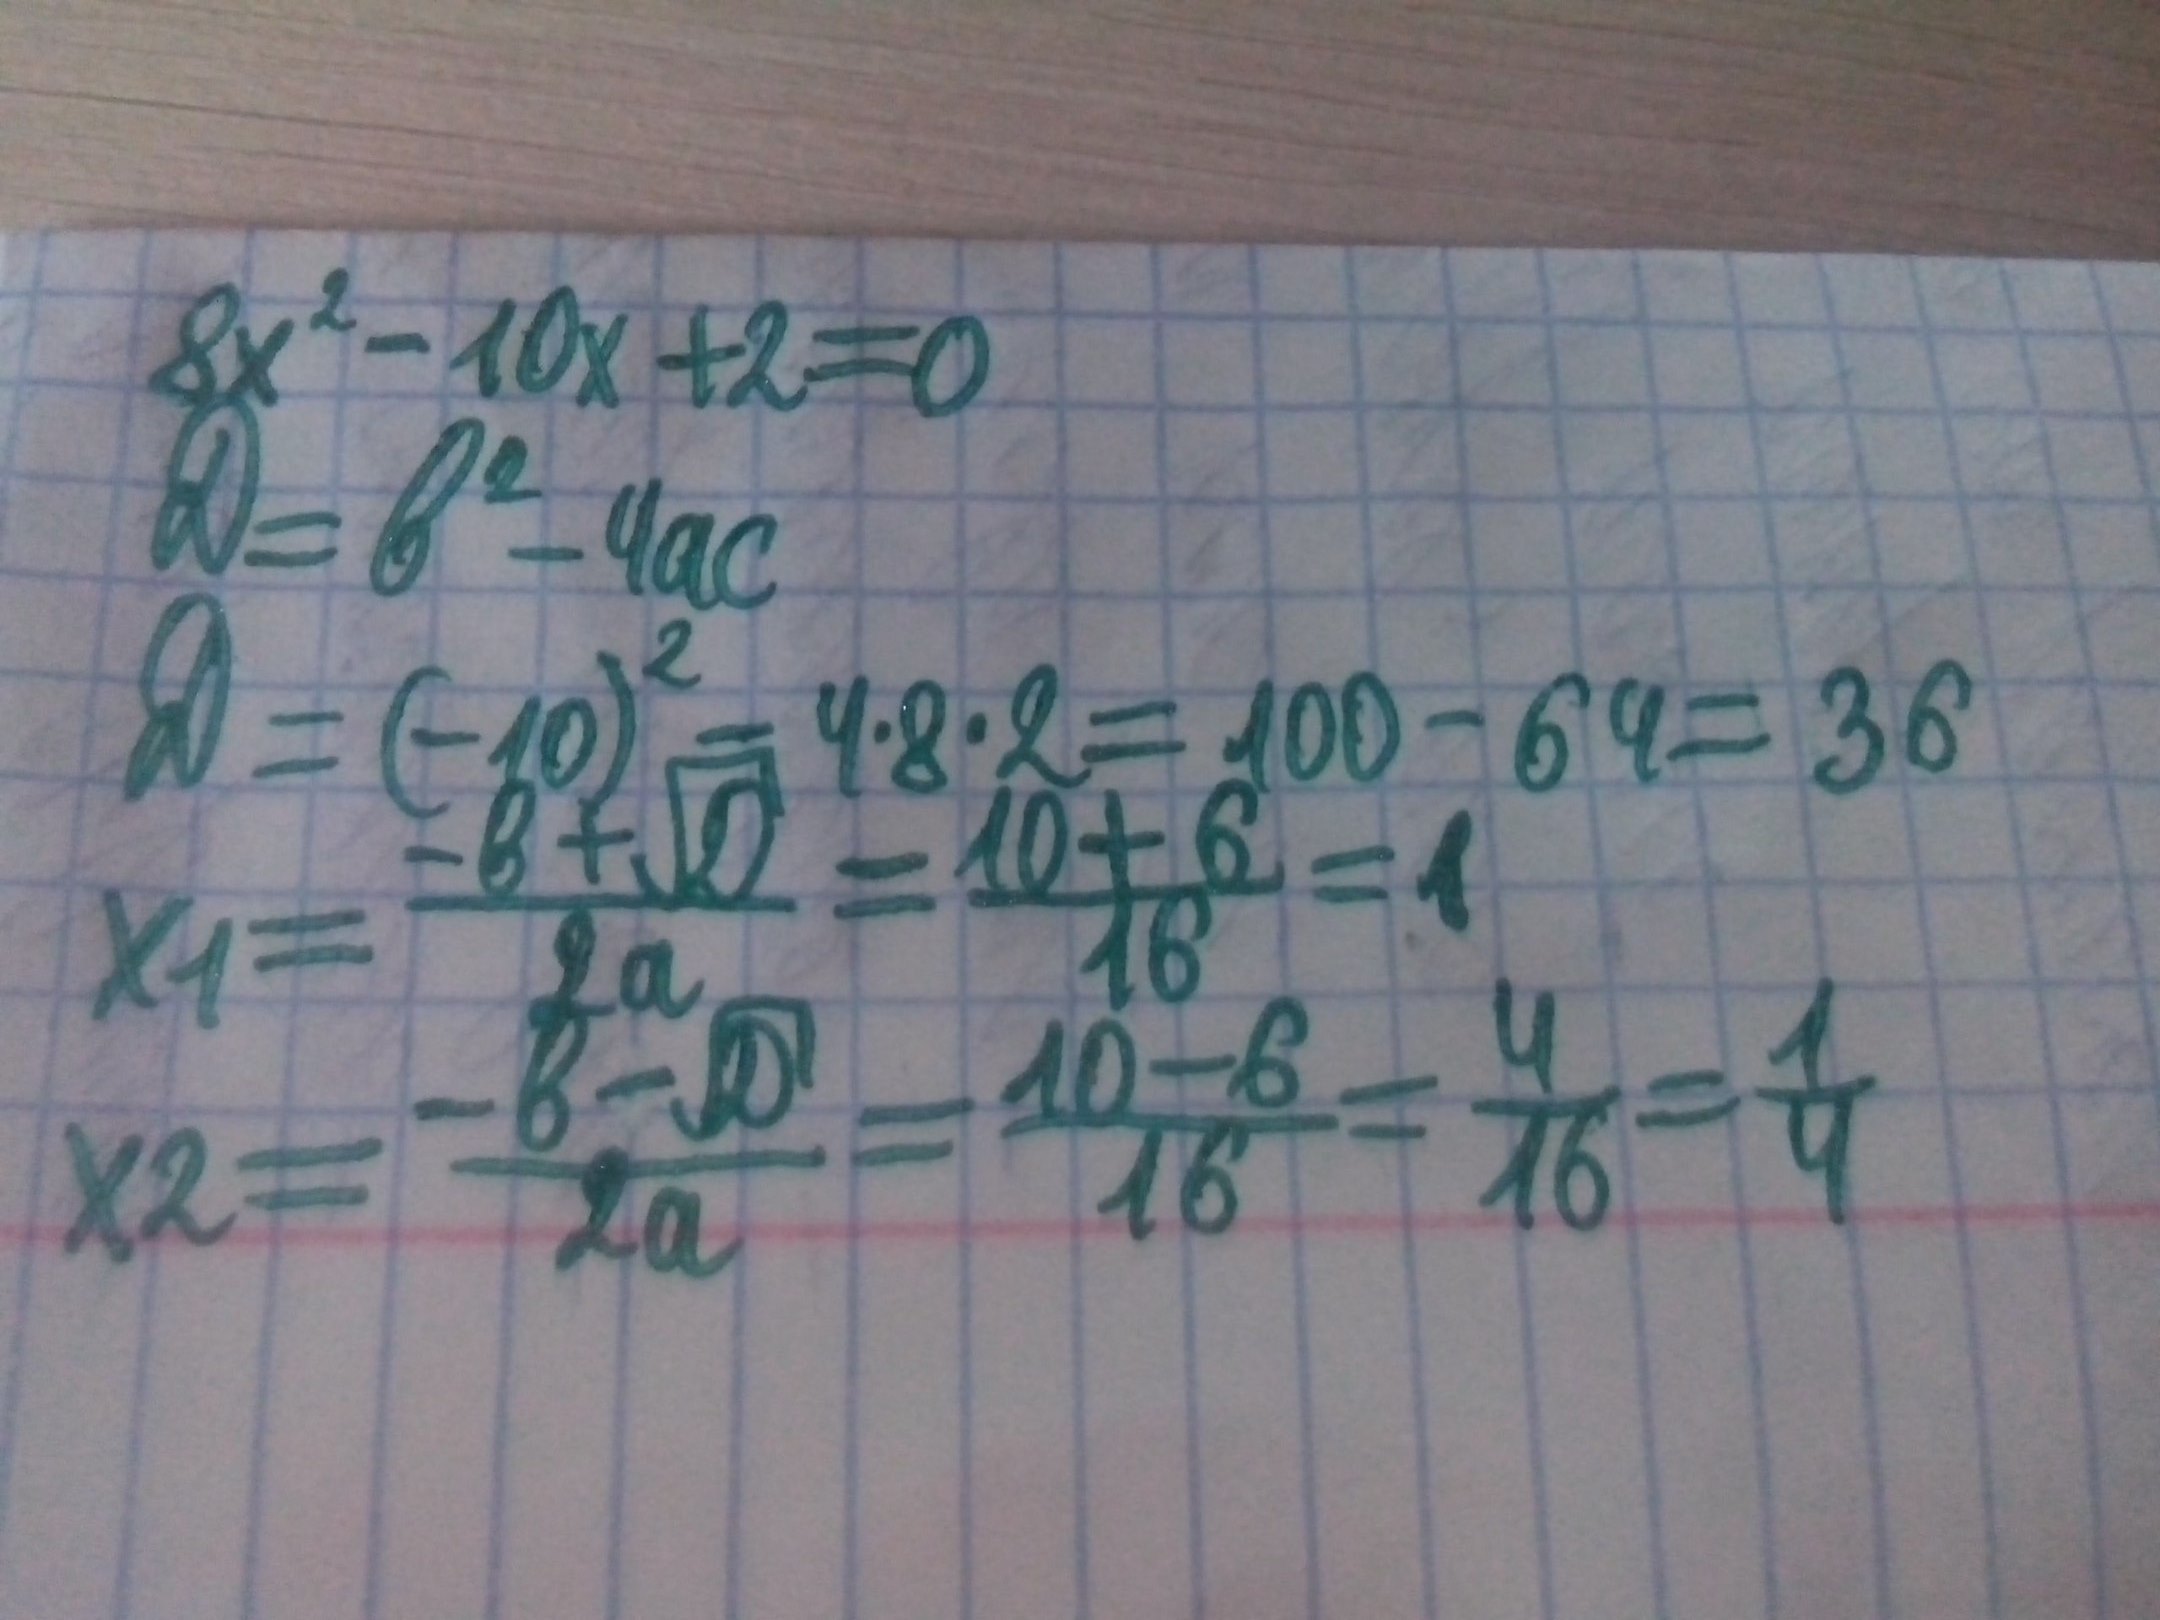 8x² - 10x + 2 = 0
D = b² - 4ac
D = (-10)² - 4·8·2 = 100 - 64 = 36
x1 = (-b + √D)/2a = (10 + 6)/16 = 1
x2 = (-b - √D)/2a = (10 - 6)/16 = 4/16 = 1/4